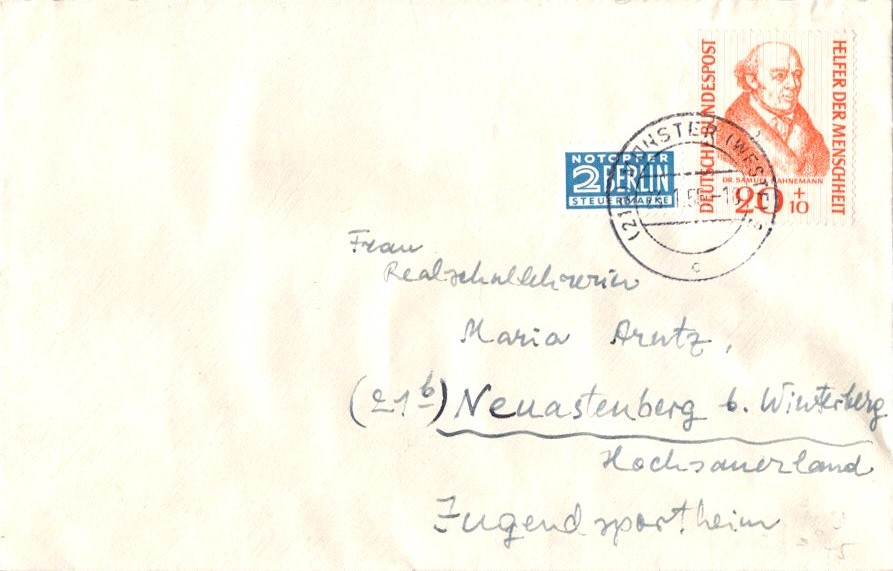 DEUTSCHE BUNDESPOST
HELFER DER MENSCHHEIT
DR. SAMUEL HAHNEMANN
20 + 10
NOTOPFER
2 BERLIN
STEUERMARKE
MÜNSTER (WESTF)
c
Frau
Realschullehrerin
Maria Arntz,
(21b) Neuastenberg b. Winterberg
Hochsauerland
Jugendsportheim